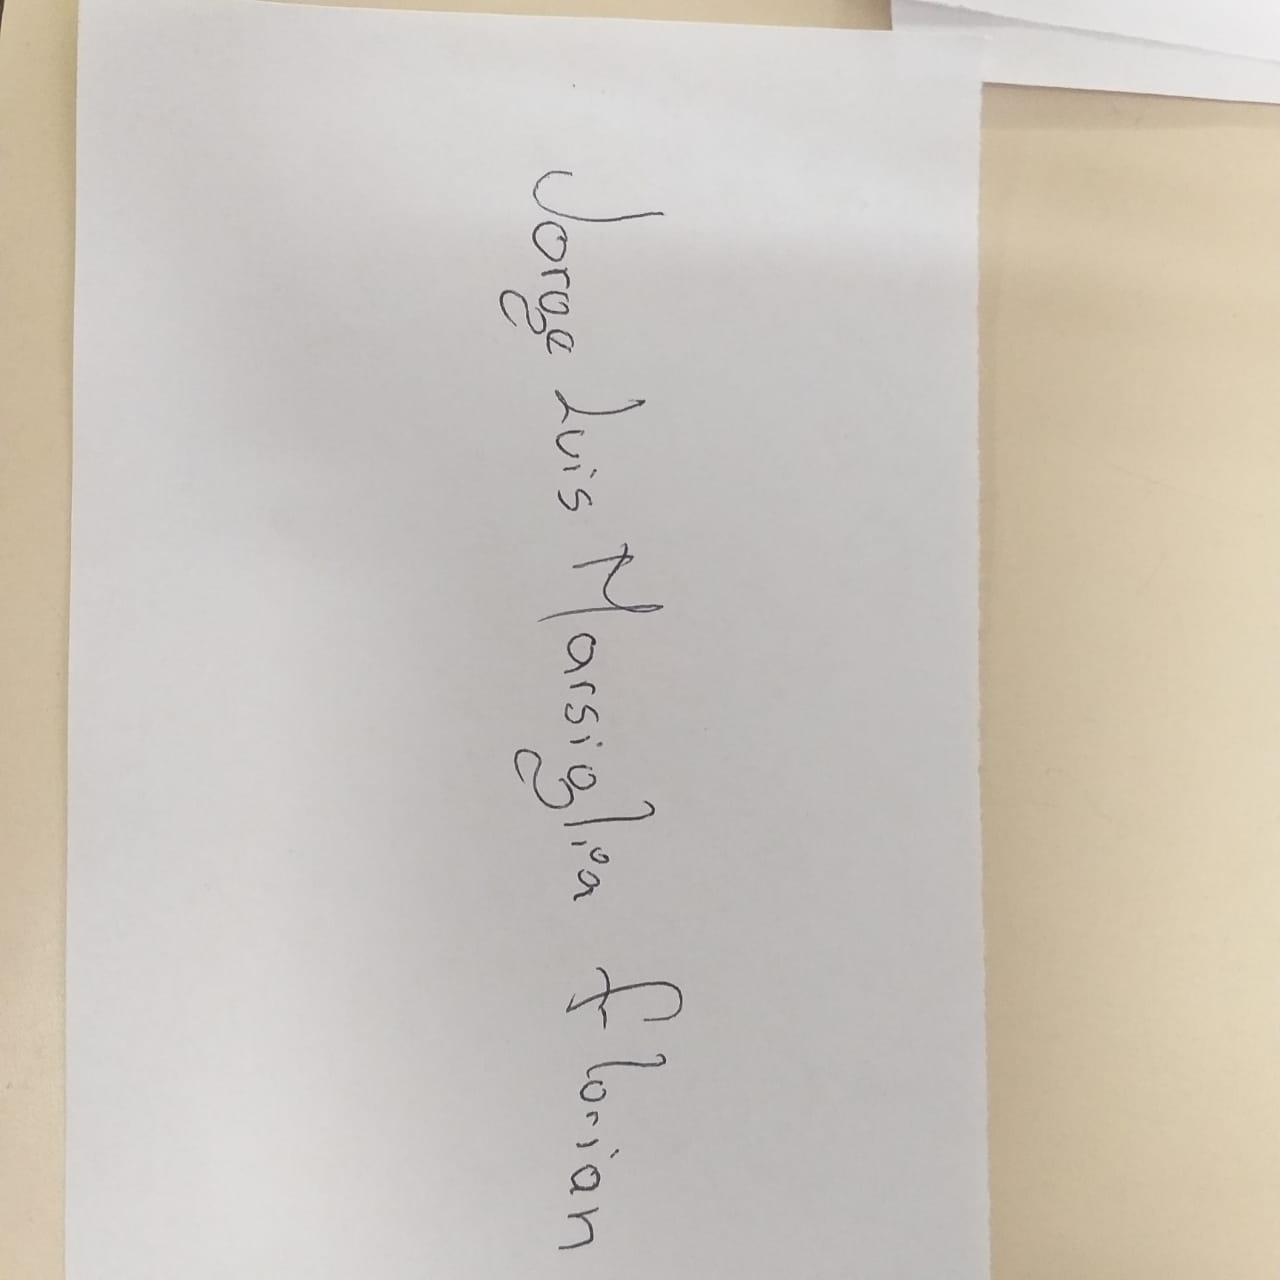 Jorge Luis Marsiglia florian